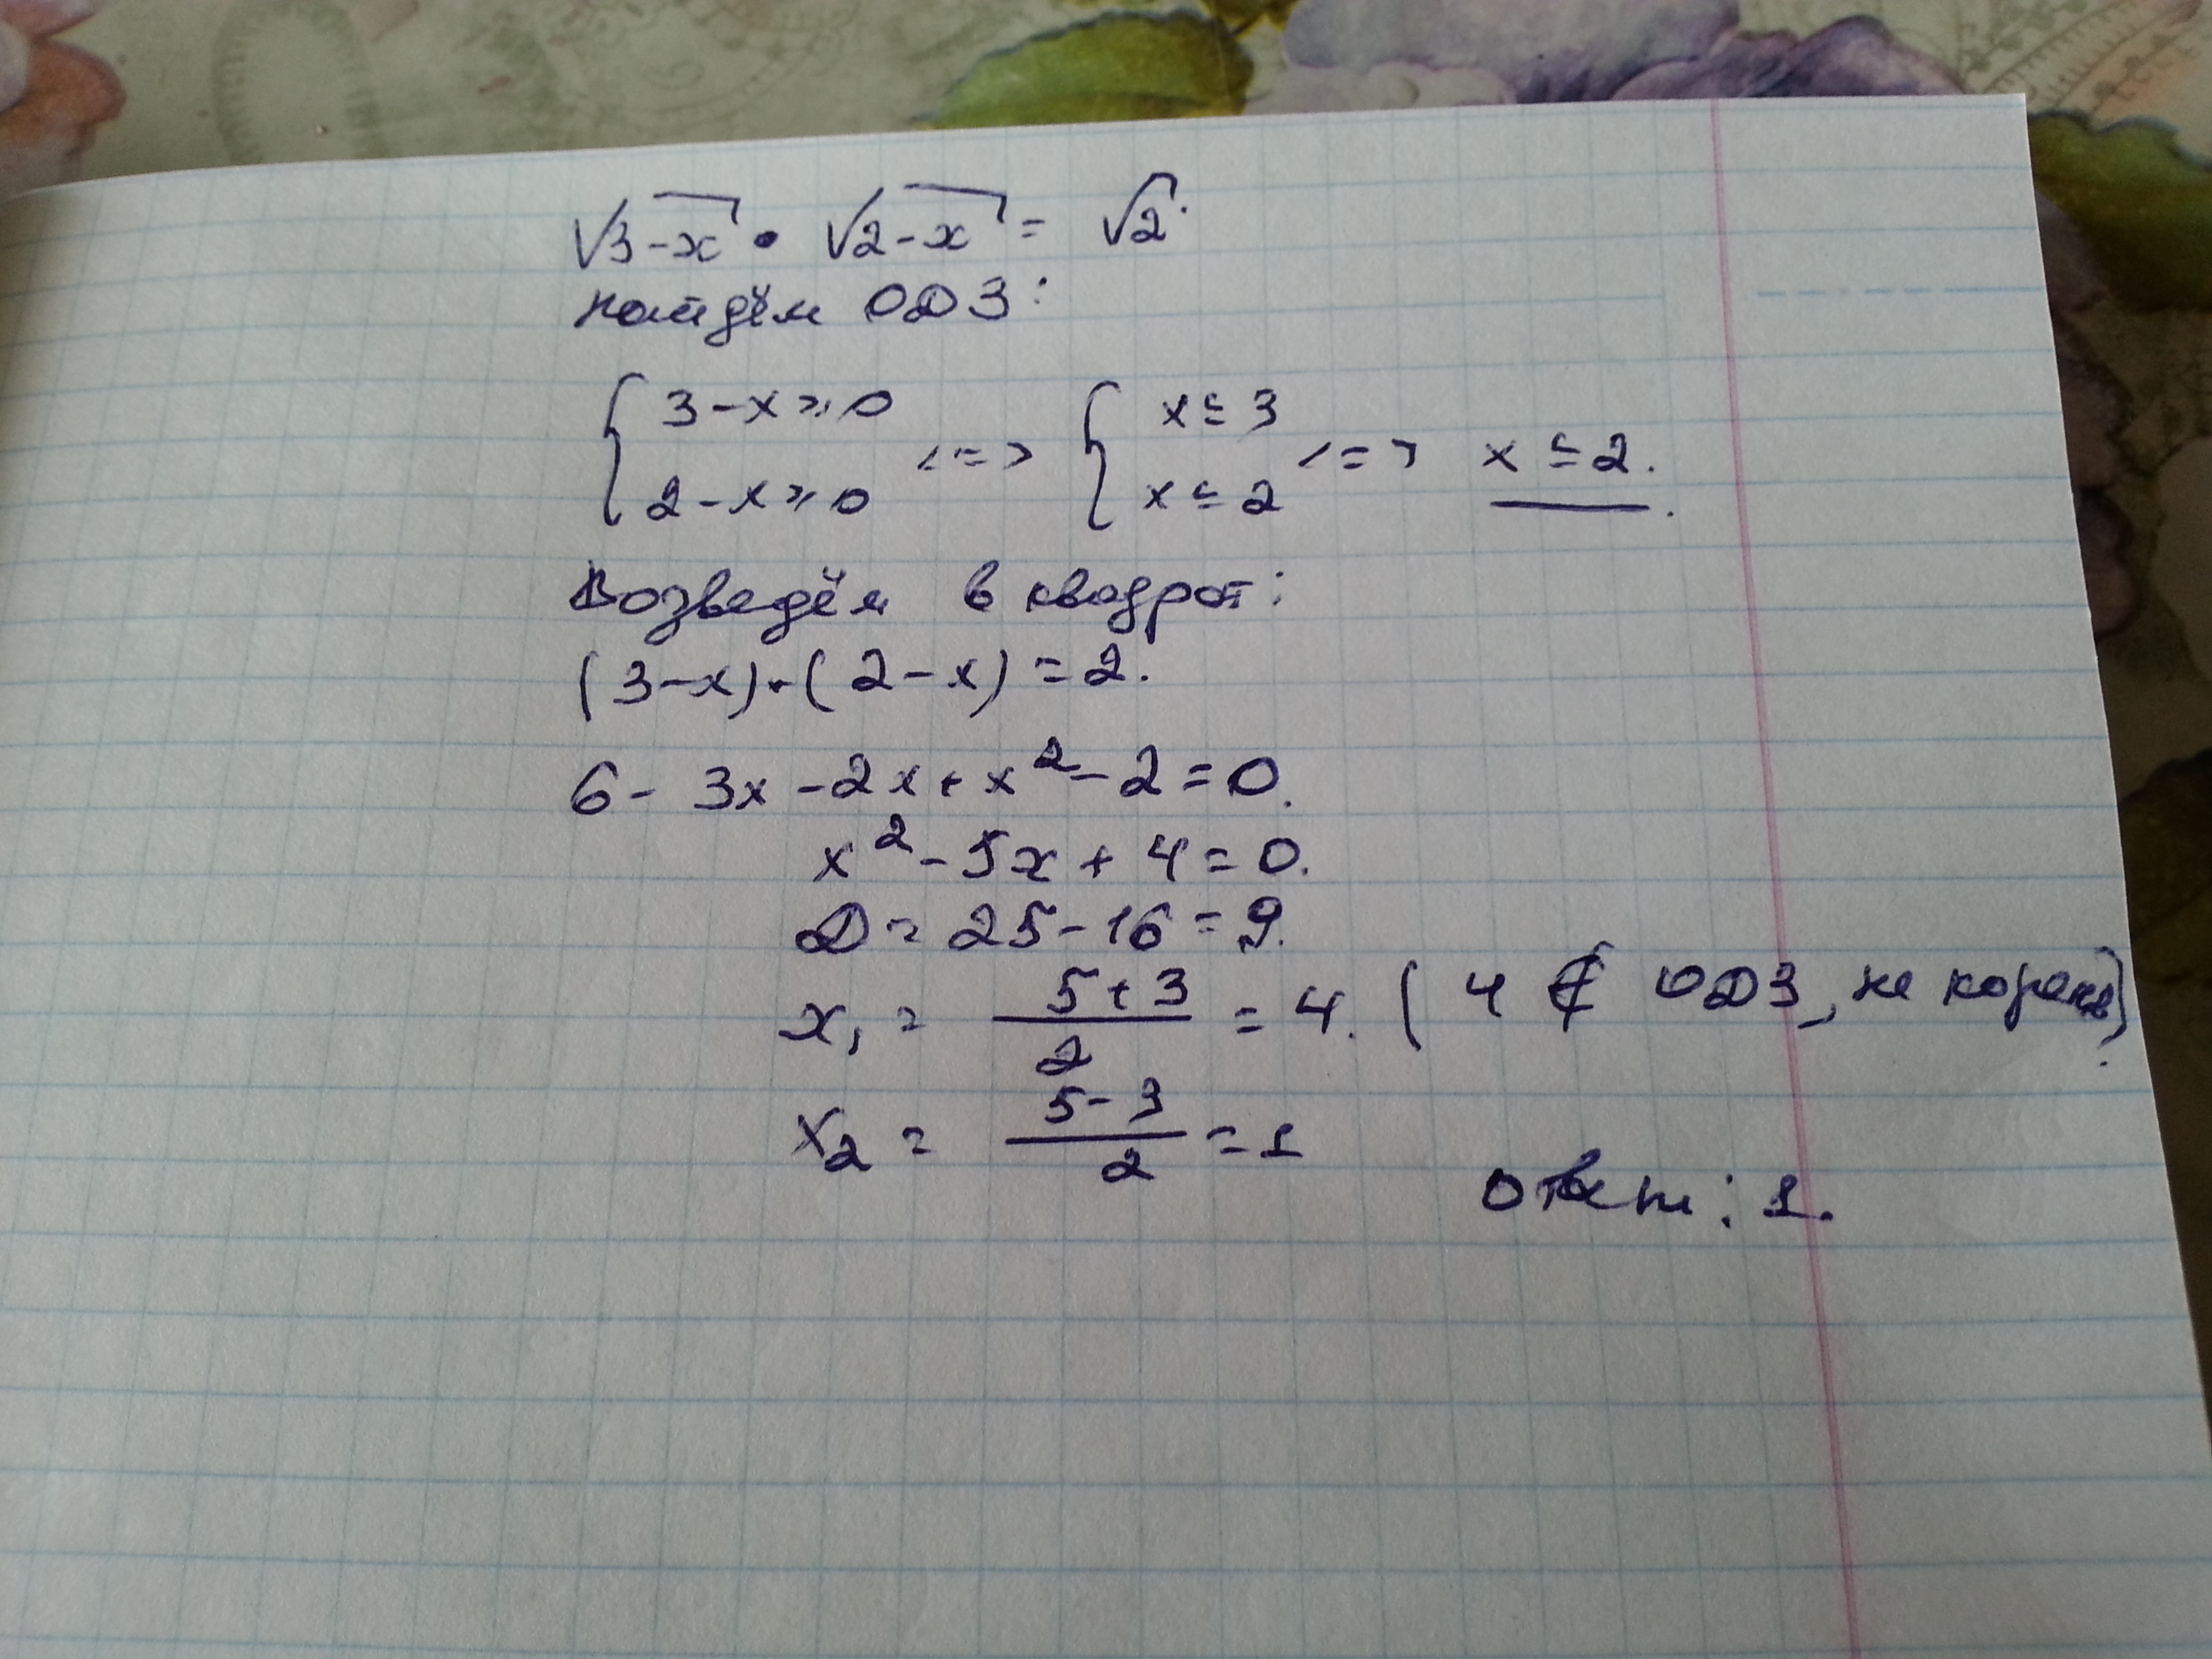 √3-x • √2-x = √2.
найдём ОДЗ:
{ 3-x ≥ 0
2-x ≥ 0 <=> { x ≤ 3
x ≤ 2 <=> x ≤ 2.
Возведём в квадрат:
(3-x)·(2-x) = 2.
6 - 3x - 2x + x² - 2 = 0.
x² - 5x + 4 = 0.
D = 25 - 16 = 9.
x₁ = (5+3)/2 = 4. (4 ∉ ОДЗ, не корень)
x₂ = (5-3)/2 = 1
Ответ: 1.